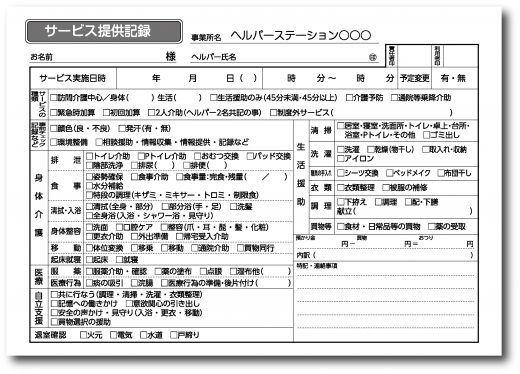 サービス提供記録
事業所名 ヘルパーステーション○○○
お名前 様 ヘルパー氏名 ㊞
サービス実施日時 年 月 日( ) 時 分〜 時 分 予定変更 有・無
サービスの種類 □訪問介護中心/身体( )生活( ) □生活援助のみ(45分未満・45分以上) □介護予防 □通院等乗降介助
□緊急時加算 □初回加算 □2人介助(ヘルパー2名共記の事) □制度外サービス( )
□顔色(良・不良) □発汗(有・無)
□環境整備 □相談援助・情報収集・情報提供・記録など
身体介護
排泄 □トイレ介助 □Pトイレ介助 □おむつ交換 □パッド交換
□陰部洗浄 □排尿( ) □排便( )
食事 □姿勢確保 □食事介助 □食事量:完食・残量( / )
□水分補給
□特段の調理(キザミ・ミキサー・トロミ・制限食)
清拭・入浴 □清拭(全身・部分) □部分浴(手・足) □洗髪
□全身浴(入浴・シャワー浴・見守り)
身体整容 □洗面 □口腔ケア □整容(爪・耳・髭・髪・化粧)
□更衣介助 □外出準備 □帰宅受入介助
移動 □体位変換 □移乗 □移動 □通院介助 □買物同行
起床就寝 □起床 □就寝
医療
服薬 □服薬介助・確認 □薬の塗布 □点眼 □湿布他( )
医療行為 □痰の吸引 □浣腸 □医療行為の準備・後片付け( )
自立支援
□共に行なう(調理・清掃・洗濯・衣類整理)
□記憶への働きかけ □意欲関心の引き出し
□安全の声かけ・見守り(入浴・更衣・移動)
□買物選択の援助
退室確認 □火元 □電気 □水道 □戸締り
生活援助
清掃 □居室・寝室・洗面所・トイレ・卓上・台所・
浴室・Pトイレ・その他 □ゴミ出し
洗濯 □洗濯 □乾燥(物干し) □取入れ・収納
□アイロン
□シーツ交換 □ベッドメイク □布団干し
衣類 □衣類整理 □被服の補修
調理 □下拵え □調理 □配・下膳
献立( )
買物等 □食材・日常品等の買物 □薬の受取
預かり金 買物 おつり
円− 円= 円
内訳( )
特記・連絡事項